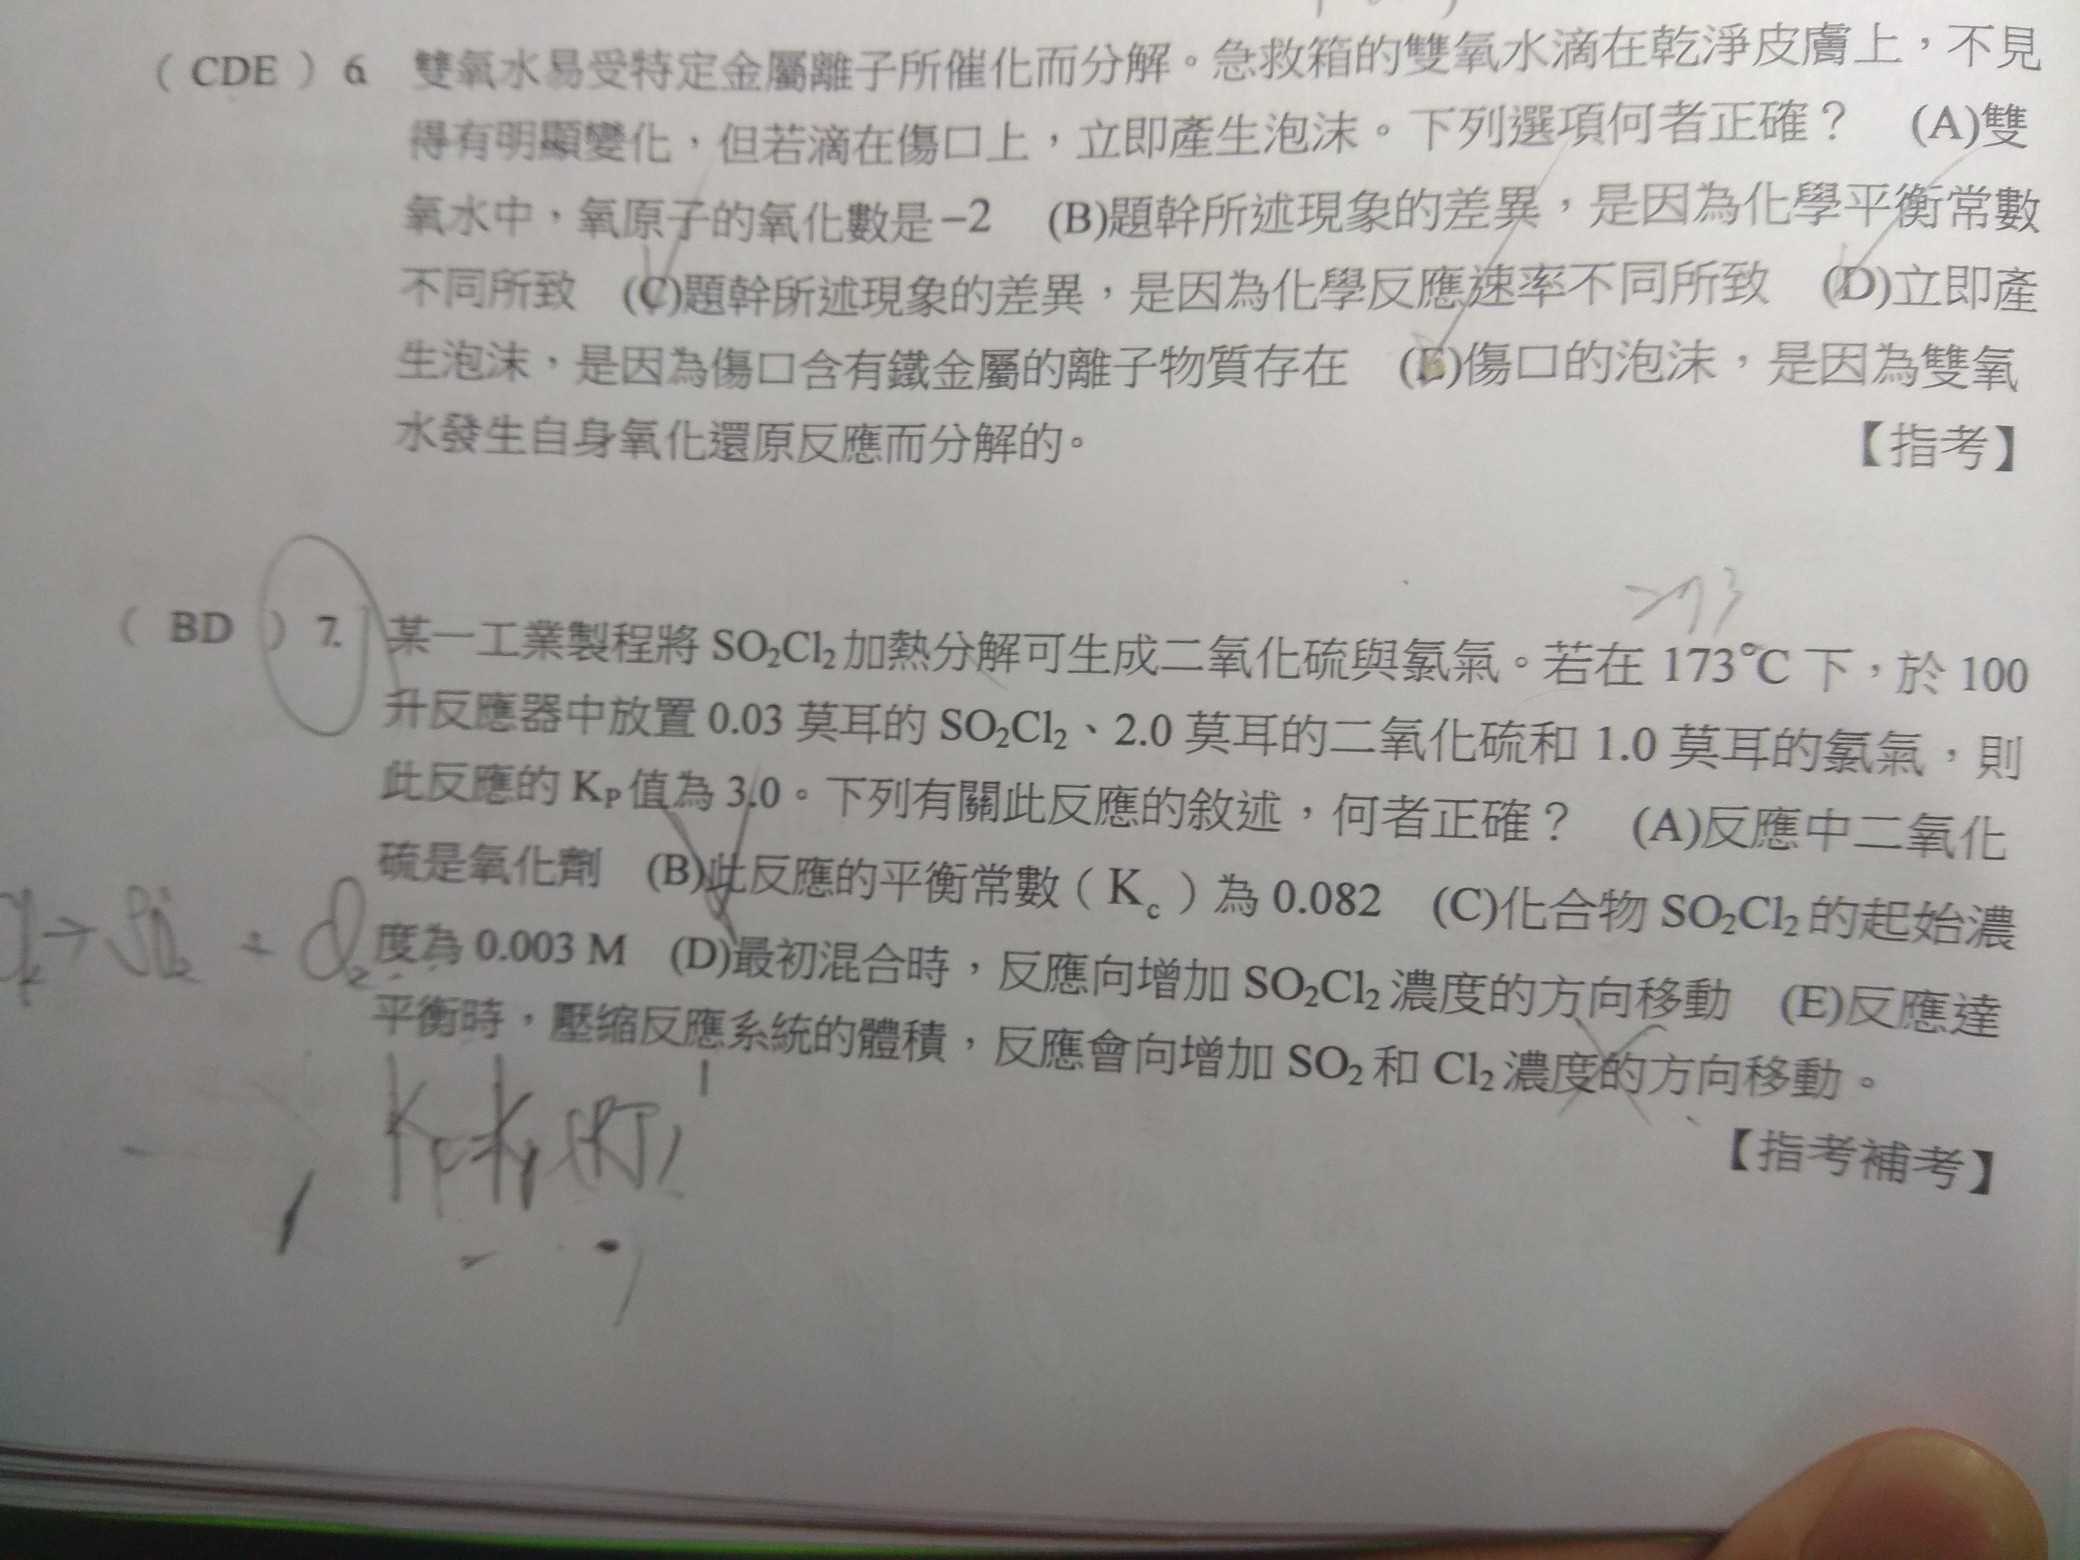 ( CDE ) 6. 雙氧水易受特定金屬離子所催化而分解。急救箱的雙氧水滴在乾淨皮膚上，不見
得有明顯變化，但若滴在傷口上，立即產生泡沫。下列選項何者正確？ (A)雙
氧水中，氧原子的氧化數是−2 (B)題幹所述現象的差異，是因為化學平衡常數
不同所致 (C)題幹所述現象的差異，是因為化學反應速率不同所致 (D)立即產
生泡沫，是因為傷口含有鐵金屬的離子物質存在 (E)傷口的泡沫，是因為雙氧
水發生自身氧化還原反應而分解的。 【指考】
273
( BD ) 7. 某一工業製程將 SO₂Cl₂加熱分解可生成二氧化硫與氯氣。若在 173℃下，於 100
升反應器中放置 0.03 莫耳的 SO₂Cl₂、2.0 莫耳的二氧化硫和 1.0 莫耳的氯氣，則
此反應的 Kₚ值為 3.0。下列有關此反應的敘述，何者正確？ (A)反應中二氧化
硫是氧化劑 (B)此反應的平衡常數（K꜀）為 0.082 (C)化合物 SO₂Cl₂的起始濃
度為 0.003 M (D)最初混合時，反應向增加 SO₂Cl₂濃度的方向移動 (E)反應達
平衡時，壓縮反應系統的體積，反應會向增加 SO₂和 Cl₂濃度的方向移動。
【指考補考】